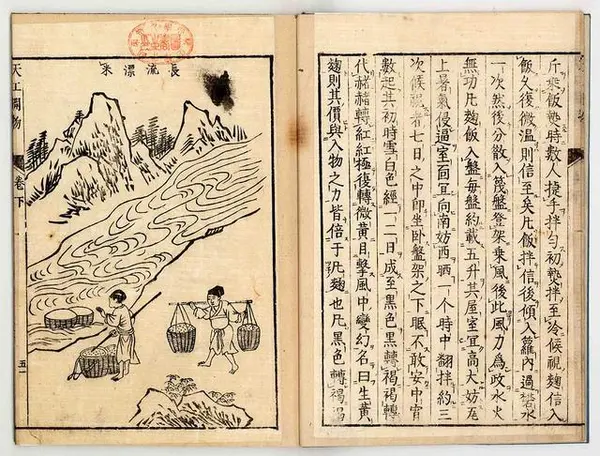 斤乘飯熱時數人捷手拌勻初熱拌至冷候視麹信入
飯久復微溫則信至矣凡飯拌信後傾入籮內過礬水
一次然後分散入篾盤登架乘風後此風力為政水火
無功凡麹飯入盤每盤約載五升其屋室宜高大妨瓦
上暑氣侵逼室面宜向南妨西晒一個時中翻拌約三
次候視者七日之中即坐臥盤架之下眠不敢安中宵
數起其初時雪白色經一二日成至黑色黑轉褐褐轉
代赭赭轉紅紅極復轉微黃目擊風中變幻名曰生黃
麹則其價與入物之力皆倍于凡麹也凡黑色轉褐褐
長流漂米
天工開物 卷下 五一